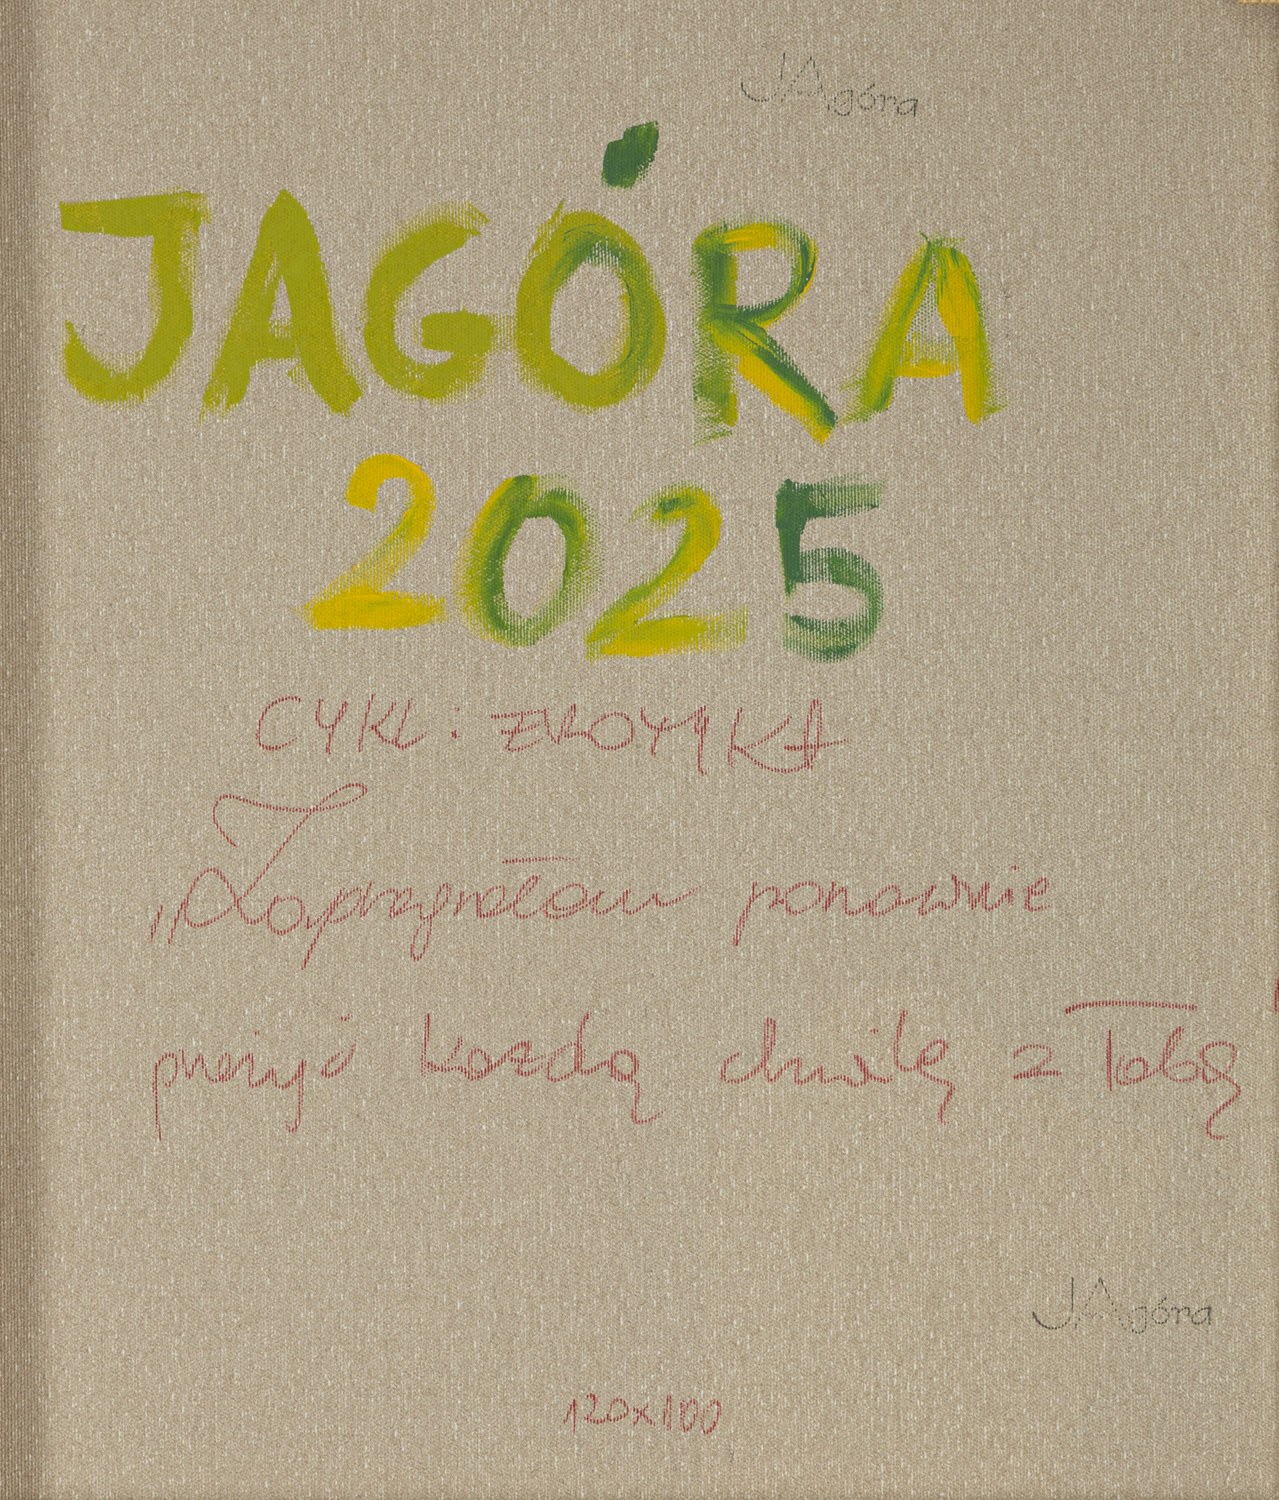 JAgóra
JAGÓRA
2025
CYKL :
„Zapragnęłam ponownie
przeżyć każdą chwilę z Tobą
JAgóra
120x100